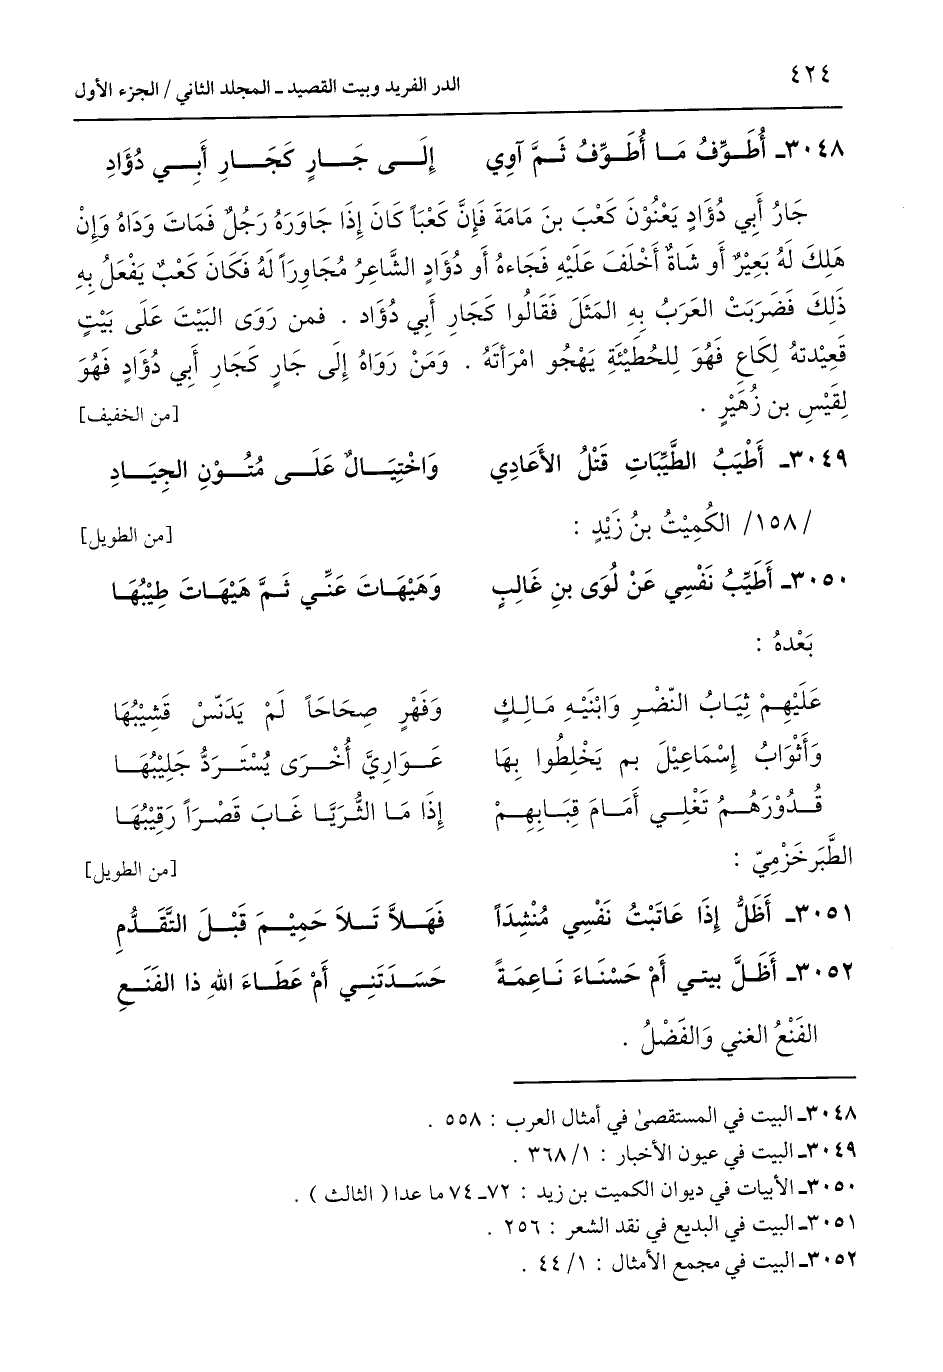 ٤٢٤
الدر الفريد وبيت القصيد ـ المجلد الثاني / الجزء الأول
٣٠٤٨ـ أُطَوِّفُ مَا أُطَوِّفُ ثَمَّ آوِي إِلَى جَارٍ كَجَارِ أَبِي دُؤَادِ
جَارُ أَبي دُؤَادٍ يَعْنُوْنَ كَعْبَ بنَ مَامَةَ فَإِنَّ كَعْبَاً كَانَ إِذَا جَاوَرَهُ رَجُلٌ فَمَاتَ وَدَاهُ وَإِنْ
هَلِكَ لَهُ بَعِيْرٌ أو شَاةٌ أَخْلَفَ عَلَيْهِ فَجَاءهُ أو دُؤَادٍ الشَّاعِرُ مُجَاوِرَاً لَهُ فَكَانَ كَعْبٌ يَفْعَلُ بِهِ
ذَلِكَ فَضَرَبَتْ العَرَبُ بِهِ المَثَلَ فَقَالُوا كَجَارِ أَبي دُؤَاد . فمن رَوَى البَيْتَ عَلَى بَيْتٍ
قَعِيْدتهُ لِكَاعِ فَهُوَ لِلحُطَيْئَةِ يَهْجُو امْرَأتَهُ . وَمَنْ رَوَاهُ إِلَى جَارٍ كَجَارِ أَبي دُؤَادٍ فَهُوَ
لِقَيْسِ بن زُهَيْرٍ . [من الخفيف]
٣٠٤٩ـ أَطْيَبُ الطَّيِّبَاتِ قَتْلُ الأَعَادِي وَاخْتِيَالٌ عَلَى مُتُوْنِ الجِيَادِ
/١٥٨/ الكُمِيْتُ بنُ زَيْدٍ : [من الطويل]
٣٠٥٠ـ أَطَيِّبُ نَفْسِي عَنْ لُوَى بنِ غَالِبٍ وَهَيْهَاتَ عَنِّي ثَمَّ هَيْهَاتَ طِيْبُهَا
بَعْدهُ :
عَلَيهِمْ ثِيَابُ النّضْرِ وَابْنَيْهِ مَالِكٍ وَفَهْرٍ صِحَاحَاً لَمْ يَدَنّسْ قَشِيْبُهَا
وَأَثْوَابُ إِسْمَاعِيْلَ بم يَخْلِطُوا بِهَا عَوَارِيَّ أُخْرَى يُسْتَرَدُّ جَلِيْبُهَا
قُدُوْرَهُمْ تَغْلِي أَمَامَ قِبَابِهِمْ إِذَا مَا الثُّرَيَّا غَابَ قَصْرَاً رَقِيْبُهَا
الطَّبَرخَزْمِيّ : [من الطويل]
٣٠٥١ـ أَظَلُّ إِذَا عَاتَبْتُ نَفْسِي مُنْشِدَاً فَهَلاَّ تَلاَ حَمِيْمَ قَبْلَ التَّقَدُّمِ
٣٠٥٢ـ أَظَلَّ بيتي أَمْ حَسْنَاءَ نَاعِمَةً حَسَدَتَنِي أَمْ عَطَاءَ اللهِ ذا الفَنَعِ
الفَنْعُ الغني وَالفَضْلُ .
٣٠٤٨ـ البيت في المستقصىٰ في أمثال العرب : ٥٥٨ .
٣٠٤٩ـ البيت في عيون الأخبار : ١/ ٣٦٨ .
٣٠٥٠ـ الأبيات في ديوان الكميت بن زيد : ٧٢ـ ٧٤ ما عدا ( الثالث ) .
٣٠٥١ـ البيت في البديع في نقد الشعر : ٢٥٦ .
٣٠٥٢ـ البيت في مجمع الأمثال : ١/ ٤٤ .